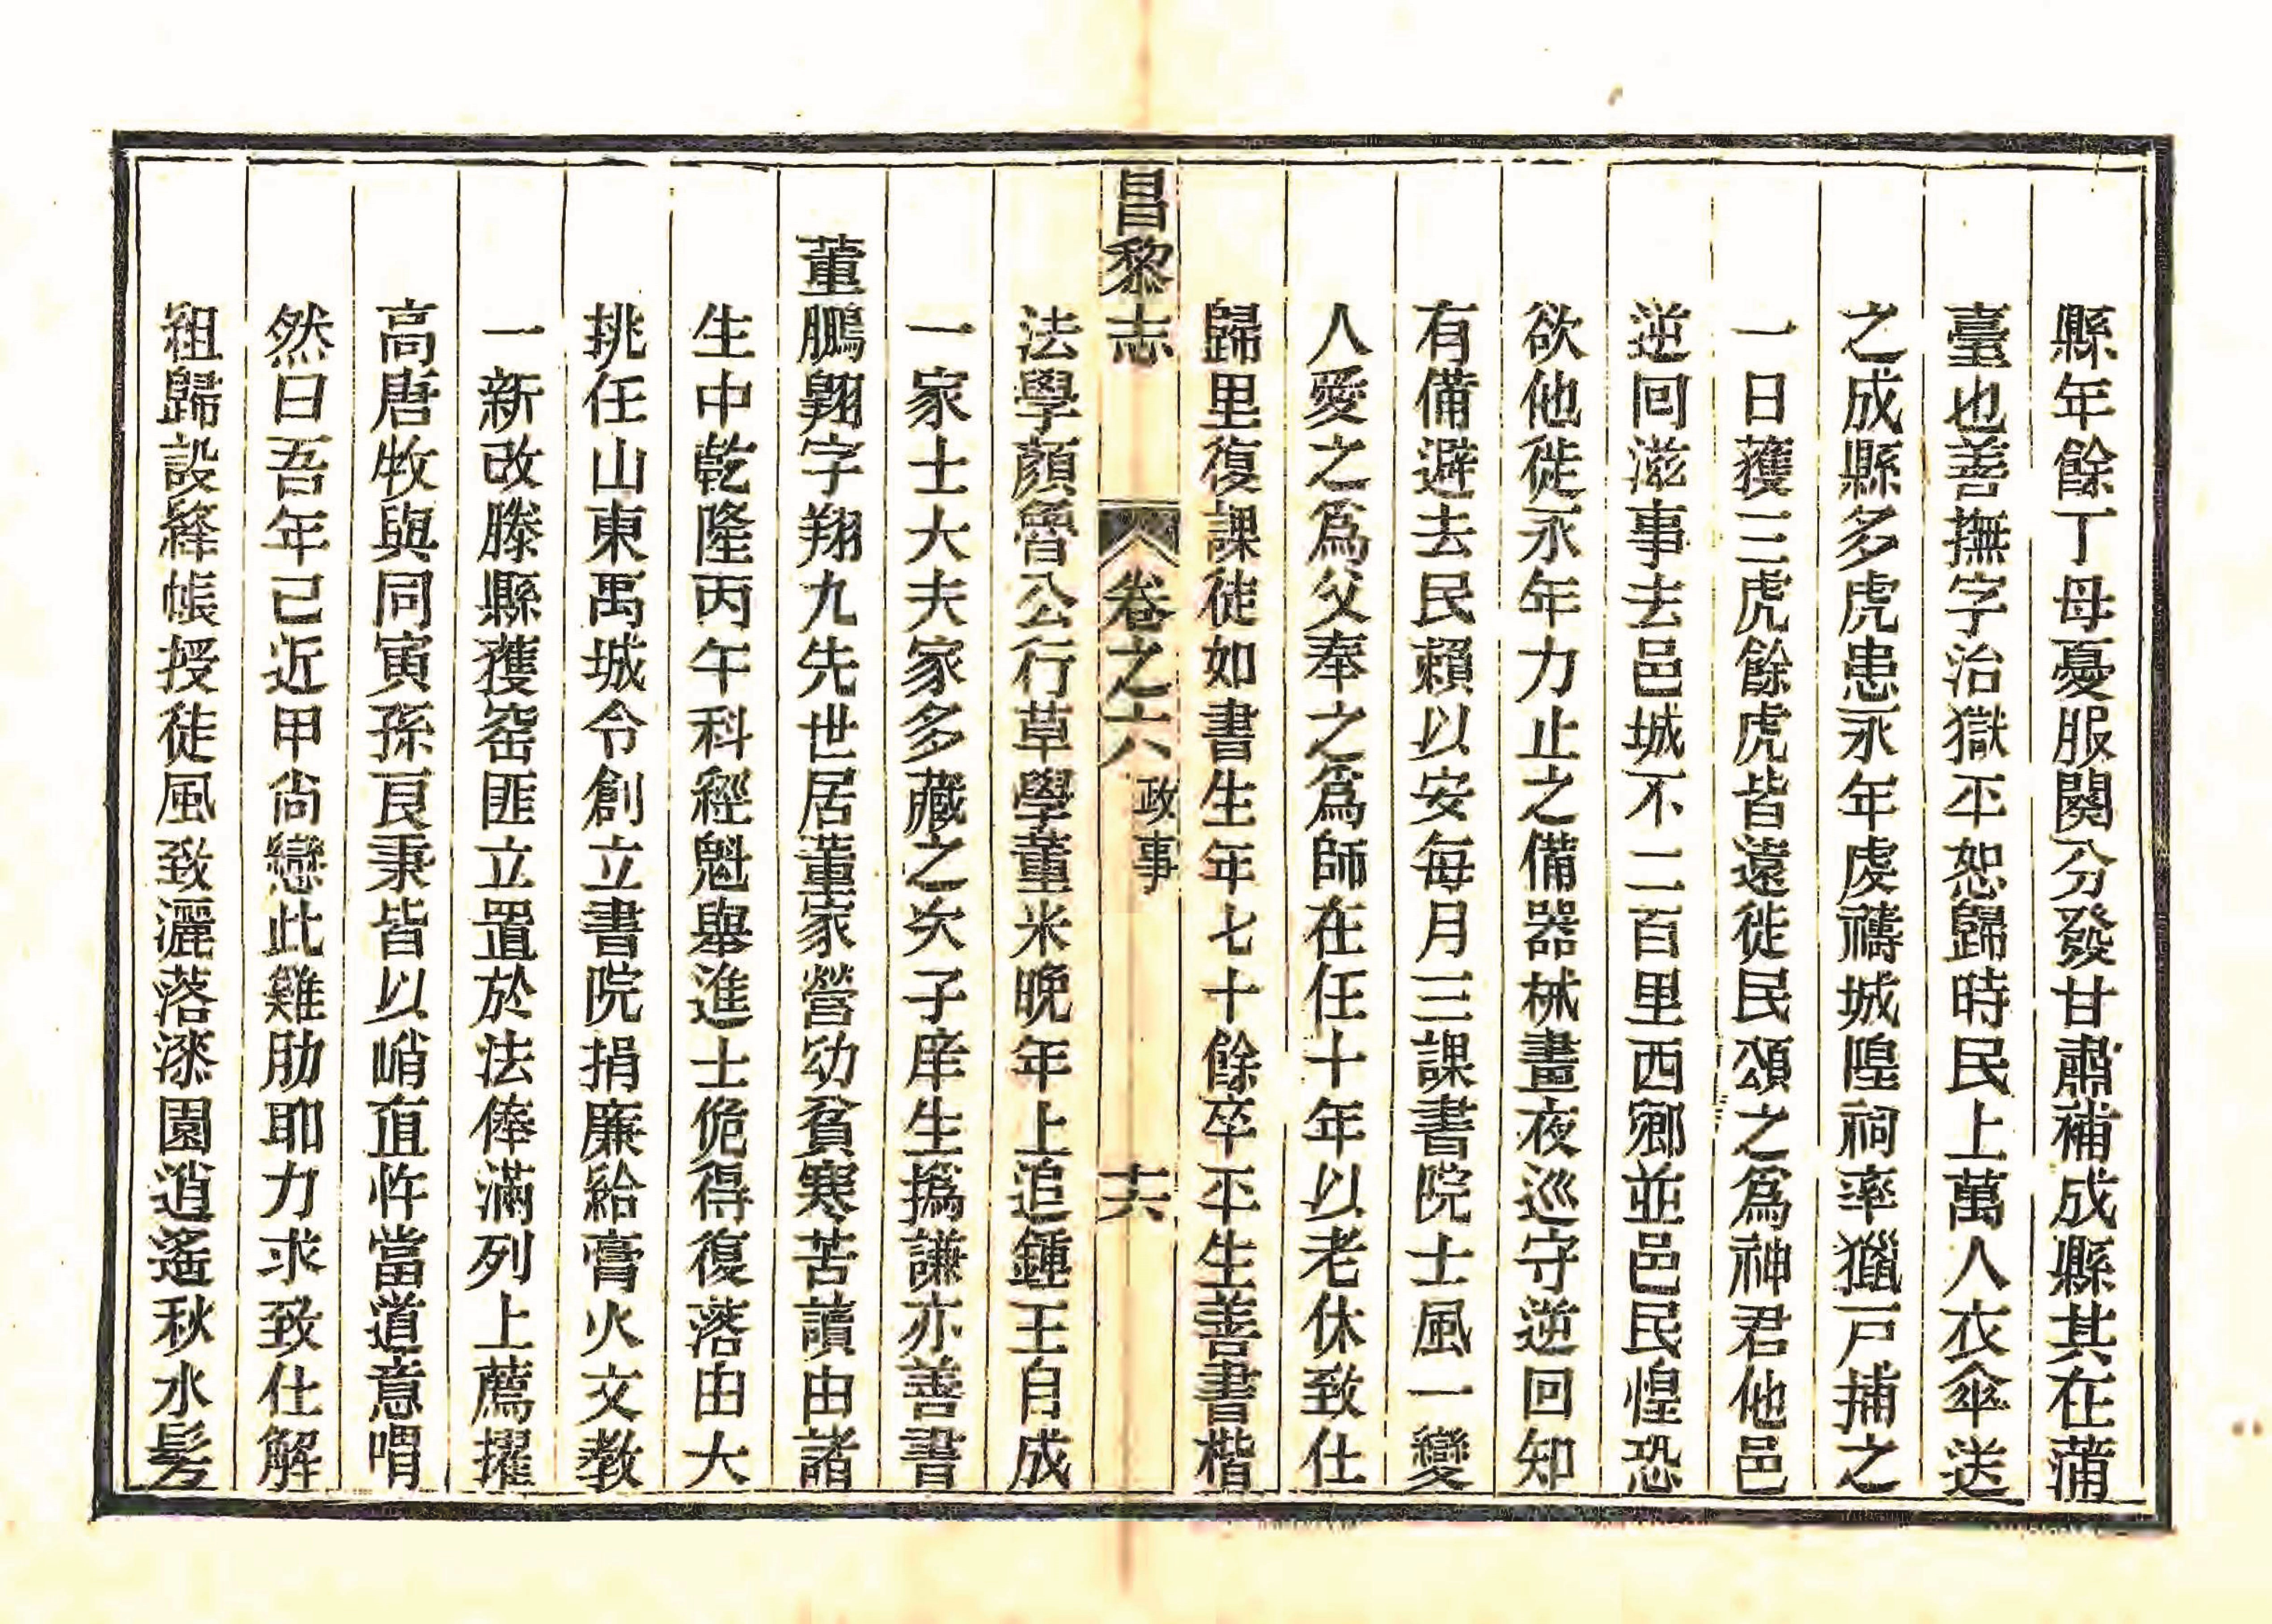 縣年餘丁母憂服闋分發甘肅補成縣其在蒲
臺也善撫字治獄平恕歸時民上萬人衣傘送
之成縣多虎患永年虔禱城隍祠率獵戶捕之
一日獲三虎餘虎皆遠徙民頌之爲神君他邑
逆回滋事去邑城不二百里西鄉並邑民惶恐
欲他徙永年力止之備器械晝夜巡守逆回知
有備避去民賴以安每月三課書院士風一變
人愛之爲父奉之爲師在任十年以老休致仕
歸里復課徒如書生年七十餘卒平生善書楷
昌黎志 卷之六 政事 十六
法學顏魯公行草學董米晚年上追鍾王自成
一家士大夫家多藏之次子庠生撝謙亦善書
董鵬翺字翔九先世居董家營幼貧寒苦讀由諸
生中乾隆丙午科經魁舉進士俛得復落由大
挑任山東禹城令創立書院捐廉給膏火文教
一新改滕縣獲窑匪立置於法俸滿列上薦擢
高唐牧與同寅孫良秉皆以峭直忤當道意喟
然曰吾年已近甲尚戀此雞肋耶力求致仕解
組歸設絳帳授徒風致灑落漆園逍遙秋水髣